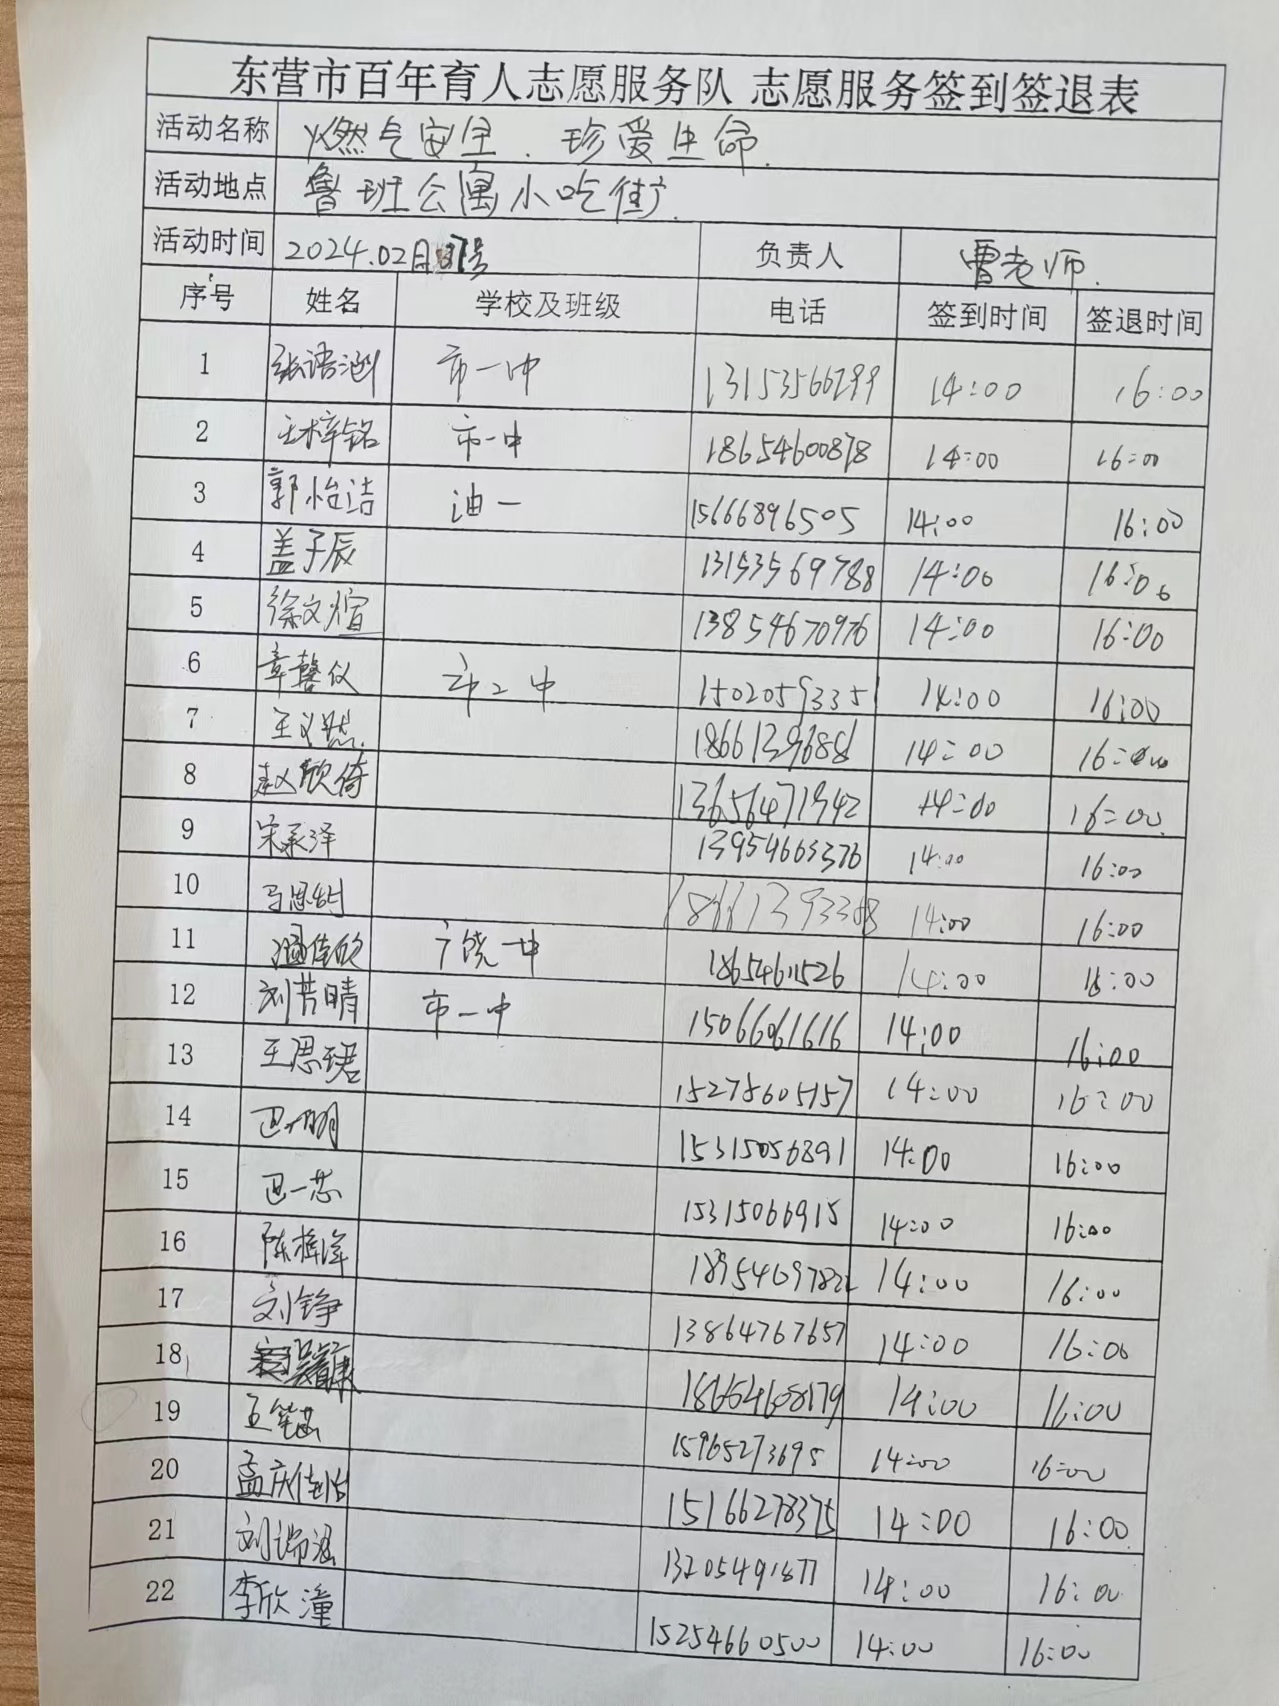 东营市百年育人志愿服务队 志愿服务签到签退表
活动名称 燃气安全、珍爱生命.
活动地点 鲁班公寓小吃街.
活动时间 2024.02月 号 负责人 曹老师.
序号 姓名 学校及班级 电话 签到时间 签退时间
1 张语涵 市一中 13153566299 14:00 16:00
2 王梓铭 市一中 18654600878 14:00 16:00
3 郭怡洁 油一 15666896505 14:00 16:00
4 盖子辰 13153569788 14:00 16:00
5 徐文煊 13854670976 14:00 16:00
6 章馨仪 市二中 15020593351 14:00 16:00
7 王义然 18661396886 14:00 16:00
8 赵欣倚 13656471942 14:00 16:00
9 宋承泽 13954663376 14:00 16:00
10 马思 14:00 16:00
11 佳欣 广饶一中 18654611526 14:00 16:00
12 刘芳晴 市一中 15066061616 14:00 16:00
13 王思珺 15275605157 14:00 16:00
14 15315056891 14:00 16:00
15 巴一芯 15315066915 14:00 16:00
16 陈梓泽 14:00 16:00
17 刘铮 13864767657 14:00 16:00
18 18664608179 14:00 16:00
19 王 15965273695 14:00 16:00
20 孟庆佳怡 15166278375 14:00 16:00
21 刘瑞涵 13205491877 14:00 16:00
22 李欣潼 15254660500 14:00 16:00